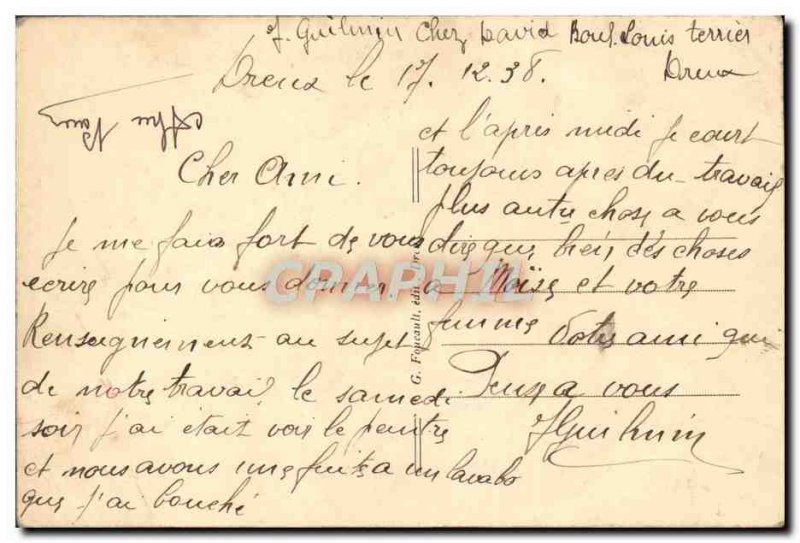 J. Guilmin Chez David Boul. Louis terrier
Dreux le 17. 12. 38.
Dreux
Cher Ami.
Je me fais fort de vous
ecrire pour vous donner
Renseignement au sujet
de notre travail, le samedi
soir j'ai etait voir le peintre
et nous avons une fuite a un lavabo
que j'ai bouché
et l'après midi je court
toujours apres du travail
plus autre chose a vous
dire que bien des choses
a Moïse et votre
femme Votre ami qui
Pense a vous
JGuilmin
G. Foucault, édit.
CRAPHIL